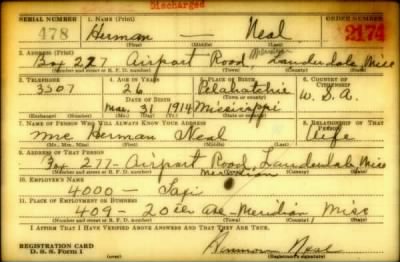 Discharged
SERIAL NUMBER 1. NAME (Print) ORDER NUMBER
478 Herman — Neal 2174
(First) (Middle) (Last)
2. ADDRESS (Print)
Box 277 Airport Road, Meridian Lauderdale Miss
(Number and street or R. F. D. number) (Town) (County) (State)
3. TELEPHONE 4. AGE IN YEARS 5. PLACE OF BIRTH 6. COUNTRY OF CITIZENSHIP
3507 26 Pelahatchie
DATE OF BIRTH (Town or county) U. S. A.
Mar. 31 1914 Mississippi
(Exchange) (Number) (Mo.) (Day) (Yr.) (State or country)
7. NAME OF PERSON WHO WILL ALWAYS KNOW YOUR ADDRESS 8. RELATIONSHIP OF THAT PERSON
Mrs Herman Neal Wife
(Mr., Mrs., Miss) (First) (Middle) (Last)
9. ADDRESS OF THAT PERSON
Box 277 - Airport Road, Meridian Lauderdale Miss
(Number and street or R. F. D. number) (Town) (County) (State)
10. EMPLOYER'S NAME
4000 - Taxi
11. PLACE OF EMPLOYMENT OR BUSINESS
409 - 20th Ave - Meridian Miss
(Number and street or R. F. D. number) (Town) (County) (State)
I AFFIRM THAT I HAVE VERIFIED ABOVE ANSWERS AND THAT THEY ARE TRUE.
REGISTRATION CARD
D. S. S. Form 1 Herman Neal
(Registrant's signature)